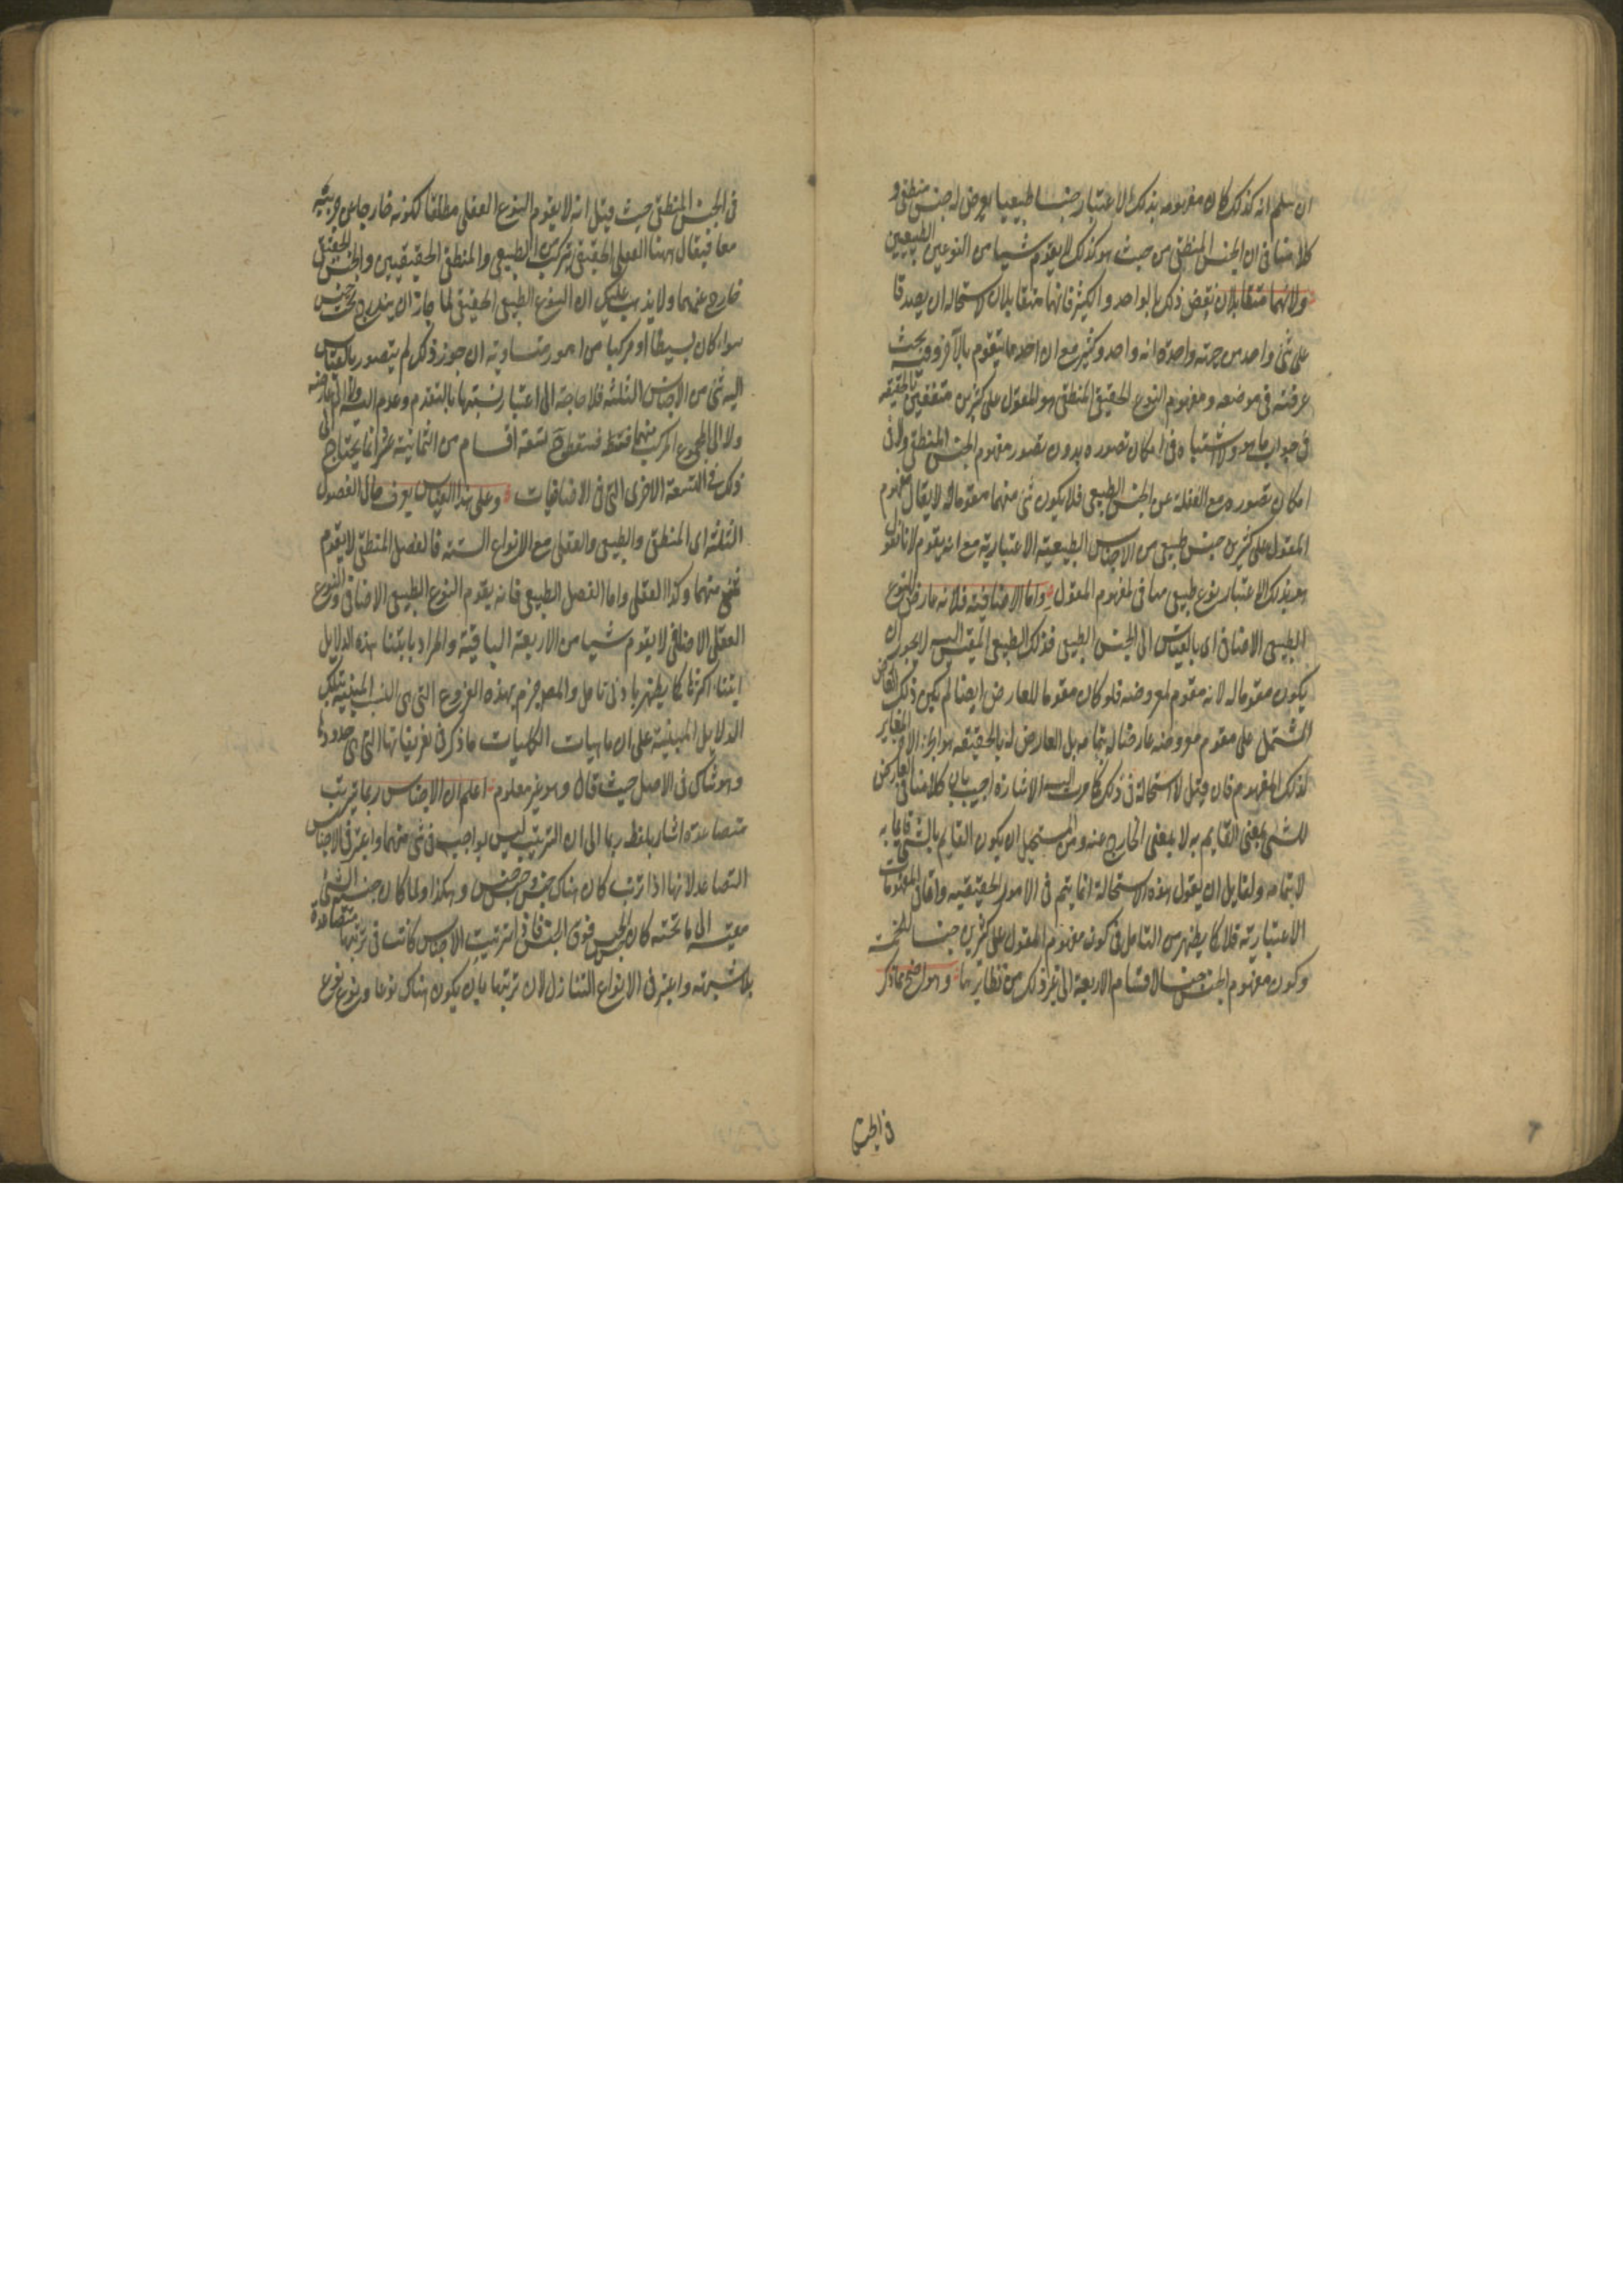 ان سلم انه كذلك كان مفهومه بذلك الاعتبار جنسا طبيعيا يعرض له جنس منطقى و
كلامنا فى ان الجنس المنطقى من حيث هو كذلك لا يقوم شيئا من النوعين الطبيعيين
ولانهما متقابلان نقض ذلك بالواحد والكثير فانهما متقابلان لاستحالة ان يصدقا
على شئ واحد من جهة واحدة انه واحد وكثير مع ان احدهما يتقوم بالآخر وفيه بحث
عرفته فى موضعه ومفهوم النوع الحقيقى المنطقى هو المقول على كثيرين متفقين بالحقيقة
فى جواب ما هو ولا اشتباه فى امكان تصوره بدون تصور مفهوم الجنس المنطقى ولا فى
امكان تصوره مع الغفلة عن الجنس الطبيعى فلا يكون شئ منهما مقوما له لا يقال مفهوم
المقول على كثيرين جنس طبيعى من الاجناس الطبيعية الاعتبارية مع انه يقوم لانا نقول
هو بذلك الاعتبار نوع طبيعى منافى لمفهوم المقول واما الاضافية فلانه عارض للنوع
الطبيعى الاضافى اى بالقياس الى الجنس الطبيعى فذلك الطبيعى المقيس اليه لا يجوز ان
يكون مقوما له لانه مقوم لمعروضه فلو كان مقوما للعارض ايضا لم يكن ذلك العارض
المشتمل على مقوم معروضه عارضا له بتمامه بل العارض له بالحقيقة هو الجزء الآخر المغاير
لذلك المفهوم فان قيل لا استحالة فى ذلك كما مرت اليه الاشارة اجيب بان كلامنا فى العارض
للشئ بمعنى القايم به لا بمعنى الخارج عنه ومن المستحيل ان يكون القايم بالشئ قايما به
لا بتمامه ولقايل ان يقول هذه الاستحالة انما يتم فى الامور الحقيقية واما فى المفهومات
الاعتبارية فلا كما يظهر من التامل فى كون مفهوم المقول على كثيرين جنسا للخمسة
وكون مفهوم الجنس جنسا لاقسام الاربعة الى غير ذلك من نظايرها وهو واضح مما ذكر
فى الجنس
فى الجنس المنطقى حيث قيل انه لا يقوم النوع العقلى مطلقا لكونه خارجا عن جزئيه
معا فيقال ههنا العقلى الحقيقى يتركب من الطبيعى والمنطقى الحقيقيين والجنس الحقيقى
خارج عنهما ولا يذهب عليك ان النوع الطبيعى الحقيقى لما جاز ان يندرج تحت جنس
سواء كان بسيطا او مركبا من امور متساوية ان جوز ذلك لم يتصور بالقياس
اليه شئ من الاجناس الثلثة فلا حاجة الى اعتبار نسبتها بالتقدم وعدمه اليه ولا الى عارضه
ولا الى المجموع المركب منهما فقط فسقط تسعة اقسام من الثمانية عشر انما يحتاج الى
ذلك فى التسعة الاخرى التى فى الاضافيات وعلى هذا القياس يعرف حال الفصول
الثلثة اى المنطقى والطبيعى والعقلى مع الانواع الستة فالفصل المنطقى لا يقوم
شئ منهما وكذا العقلى واما الفصل الطبيعى فانه يقوم النوع الطبيعى الاضافى والنوع
العقلى الاضافى لا يقوم شيئا من الاربعة الباقية والمراد بابتناء هذه الدلايل
ابتناء اكثرها كما يظهر بادنى تامل والمص جزم بهذه الفروع التى هى النسب المبنية بتلك
الدلايل المبنية على ان ماهيات الكليات ما ذكر فى تعريفاتها التى هى حدودها
وهو شاك فى الاصل حيث قال وهو غير معلوم اعلم ان الاجناس ربما يترتب
متصاعدة اشار بلفظ ربما الى ان الترتيب ليس بواجب فى شئ منهما واعتبر فى الاجناس
التصاعد لانها اذا ترتبت كان هناك جنس وجنس جنس وهكذا ولما كان جنسية الشئ
مقيسة الى ما تحته كان الجنس فوق الجنس فاذا ترتبت الاجناس كانت فى ترتبها متصاعدة
بلا شبهة واعتبر فى الانواع التنازل لان ترتبها بان يكون هناك نوعا ونوع نوع